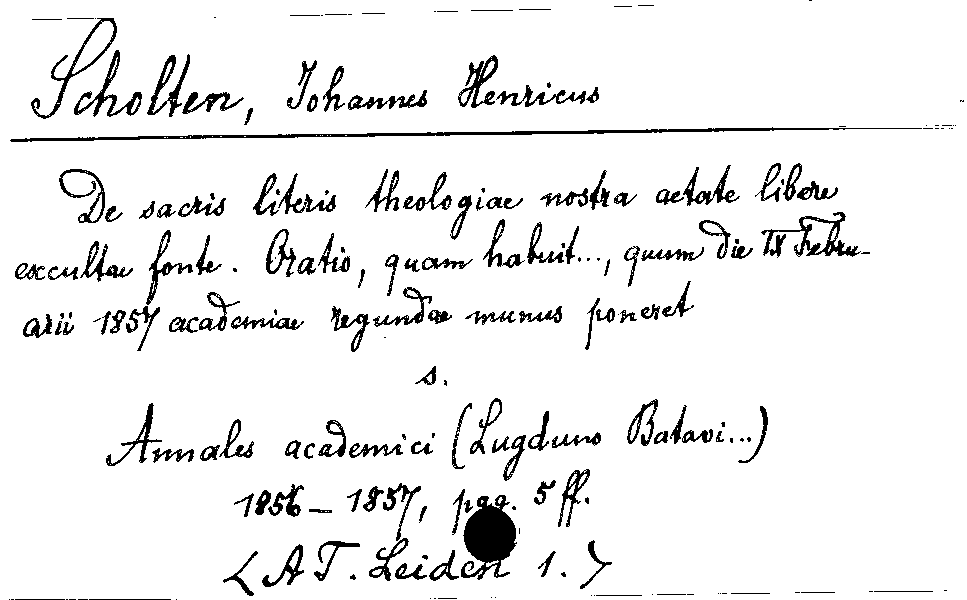 Scholten, Johannes Henricus
De sacris literis theologiae nostra aetate libere
excultae fonte. Oratio, quam habuit..., quum die IX Febru-
arii 1857 academiae regundae munus poneret
s.
Annales academici (Lugduno Batavi...)
1856 – 1857, pag. 5 ff.
<AT. Leiden 1.>